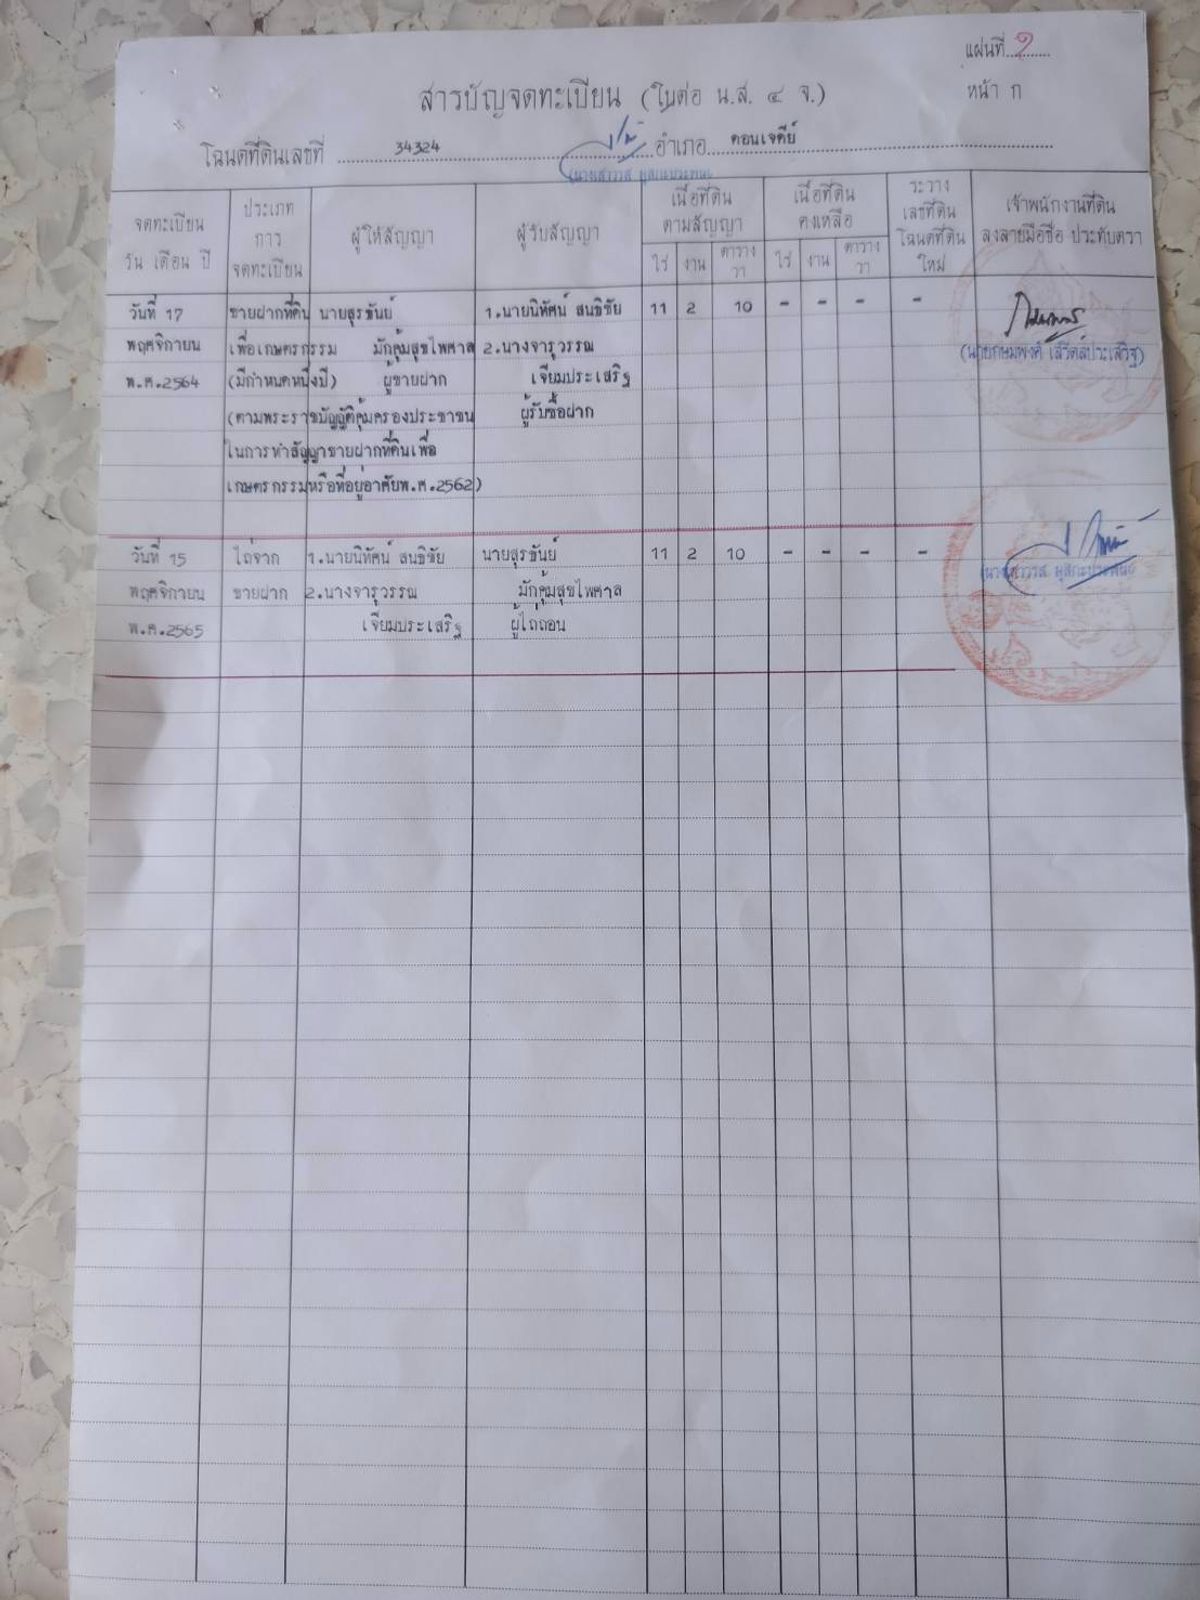 แผ่นที่ ๑
หน้า ก
สารบัญจดทะเบียน (ใบต่อ น.ส. ๔ จ.)
โฉนดที่ดินเลขที่ 34324 อำเภอ ดอนเจดีย์
จดทะเบียน วัน เดือน ปี
ประเภท การ จดทะเบียน
ผู้ให้สัญญา
ผู้รับสัญญา
เนื้อที่ดิน ตามสัญญา
ไร่ งาน ตาราง วา
เนื้อที่ดิน คงเหลือ
ไร่ งาน ตาราง วา
ระวาง เลขที่ดิน โฉนดที่ดิน ใหม่
เจ้าพนักงานที่ดิน ลงลายมือชื่อ ประทับตรา
วันที่ 17 ขายฝากที่ดิน นายสุรชันย์ 1.นายนิทัศน์ สนธิชัย 11 2 10 - - - -
พฤศจิกายน เพื่อเกษตรกรรม มักคุ้มสุขไพศาล 2.นางจารุวรรณ
พ.ศ.2564 (มีกำหนดหนึ่งปี) ผู้ขายฝาก เจียมประเสริฐ
(ตามพระราชบัญญัติคุ้มครองประชาชน ผู้รับซื้อฝาก
ในการทำสัญญาขายฝากที่ดินเพื่อ
เกษตรกรรมหรือที่อยู่อาศัยพ.ศ.2562)
วันที่ 15 ไถ่จาก 1.นายนิทัศน์ สนธิชัย นายสุรชันย์ 11 2 10 - - - -
พฤศจิกายน ขายฝาก 2.นางจารุวรรณ มักคุ้มสุขไพศาล
พ.ศ.2565 เจียมประเสริฐ ผู้ไถ่ถอน